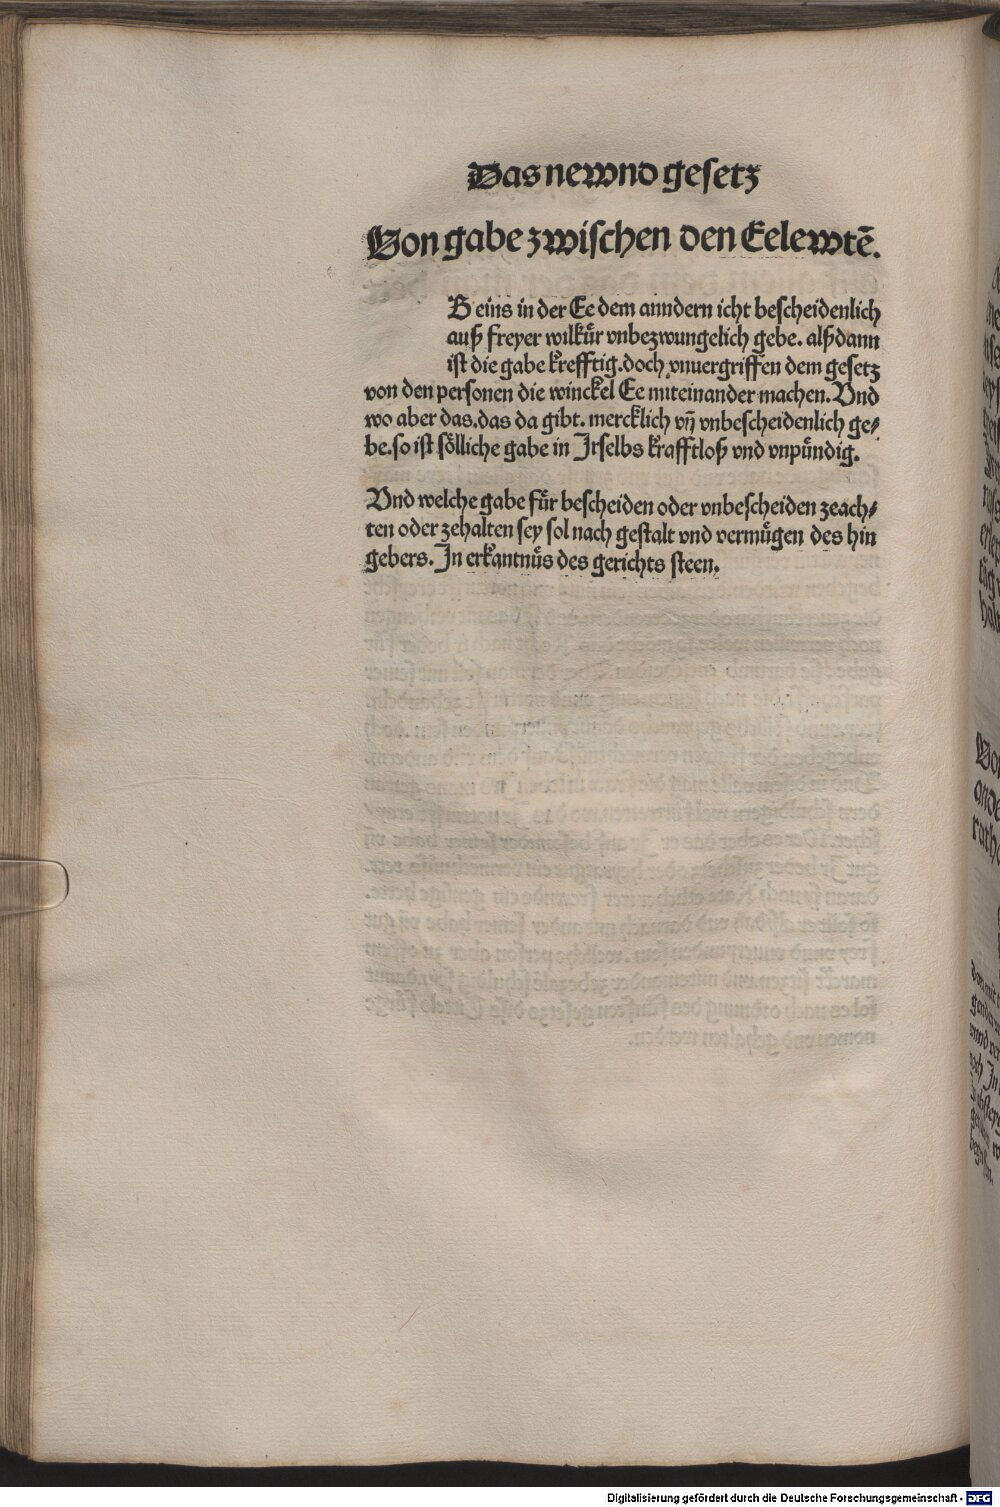 Das newnd gesetz
Von gabe zwischen den Eelewtē.
B eins in der Ee dem anndern icht bescheidenlich
auß freyer wilkuͤr vnbezwungelich gebe. alßdann
ist die gabe krefftig. doch vnuergriffen dem gesetz
von den personen die winckel Ee miteinander machen. Vnd
wo aber das. das da gibt. mercklich vn̄ vnbescheidenlich ge⸗
be. so ist soͤlliche gabe in Irselbs krafftloß vnd vnpuͤndig.
Vnd welche gabe fuͤr bescheiden oder vnbescheiden zeach⸗
ten oder zehalten sey sol nach gestalt vnd vermuͤgen des hin
gebers. In erkantnuͤs des gerichts steen.
Digitalisierung gefördert durch die Deutsche Forschungsgemeinschaft - DFG